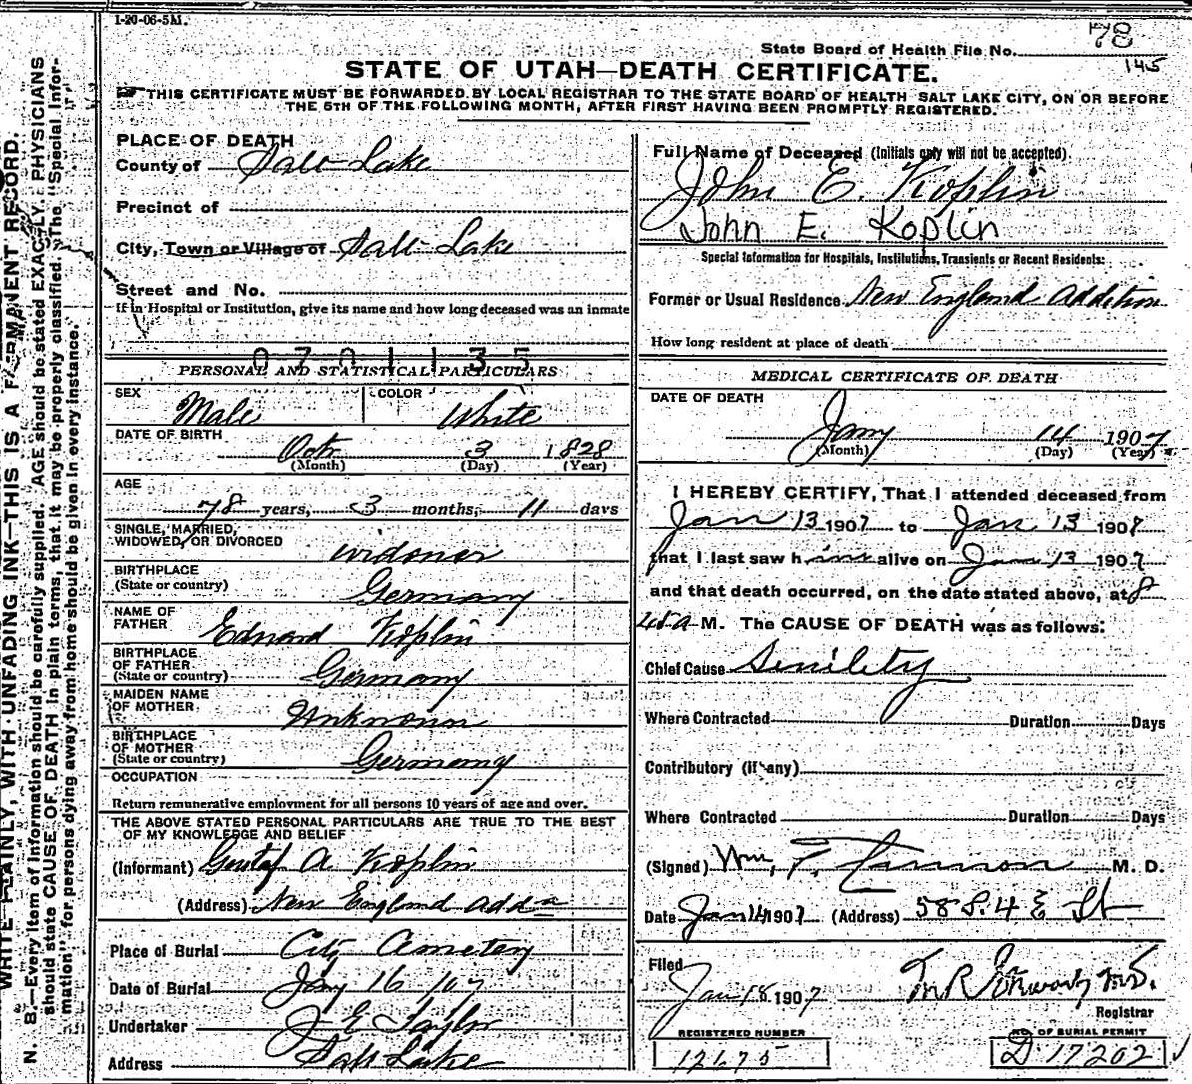 1-20-06-5M.
78
State Board of Health File No.
145
STATE OF UTAH—DEATH CERTIFICATE.
THIS CERTIFICATE MUST BE FORWARDED BY LOCAL REGISTRAR TO THE STATE BOARD OF HEALTH SALT LAKE CITY, ON OR BEFORE
THE 5TH OF THE FOLLOWING MONTH, AFTER FIRST HAVING BEEN PROMPTLY REGISTERED.
WRITE PLAINLY, WITH UNFADING INK—THIS IS A PERMANENT RECORD.
N. B.—Every item of Information should be carefully supplied. AGE should be stated EXACTLY. PHYSICIANS
should state CAUSE OF DEATH in plain terms, that it may be properly classified. The "Special Infor-
mation" for persons dying away from home should be given in every instance.
PLACE OF DEATH
County of Salt Lake
Precinct of
City, Town or Village of Salt Lake
Street and No.
If in Hospital or Institution, give its name and how long deceased was an inmate
0701135
PERSONAL AND STATISTICAL PARTICULARS
SEX Male COLOR White
DATE OF BIRTH
Oct 3 1828
(Month) (Day) (Year)
AGE
78 years, 3 months, 11 days
SINGLE, MARRIED,
WIDOWED, OR DIVORCED widower
BIRTHPLACE
(State or country) Germany
NAME OF
FATHER Edward Koplin
BIRTHPLACE
OF FATHER
(State or country) Germany
MAIDEN NAME
OF MOTHER Unknown
BIRTHPLACE
OF MOTHER
(State or country) Germany
OCCUPATION
Return remunerative employment for all persons 10 years of age and over.
THE ABOVE STATED PERSONAL PARTICULARS ARE TRUE TO THE BEST
OF MY KNOWLEDGE AND BELIEF
(Informant) Gustaf A Koplin
(Address) New England Addn
Place of Burial City Cemetery
Date of Burial Jany 16 /07
Undertaker J E Taylor
Address Salt Lake
Full Name of Deceased (Initials only will not be accepted)
John E. Koplin
John E. Koplin
Special Information for Hospitals, Institutions, Transients or Recent Residents:
Former or Usual Residence New England Addition
How long resident at place of death
MEDICAL CERTIFICATE OF DEATH
DATE OF DEATH
Jany 14 1907
(Month) (Day) (Year)
I HEREBY CERTIFY, That I attended deceased from
Jan 13 1907 to Jan 13 1907
that I last saw him alive on Jan 13 1907
and that death occurred, on the date stated above, at 8
45 A M. The CAUSE OF DEATH was as follows:
Chief Cause Senility
Where Contracted Duration Days
Contributory (if any)
Where Contracted Duration Days
(Signed) Wm. T. Cannon M. D.
Date Jan 14 1907 (Address) 58 S. 4 E St
Filed
Jan 18 1907 M.D.
Registrar
REGISTERED NUMBER
12675
NO. OF BURIAL PERMIT
D 17202